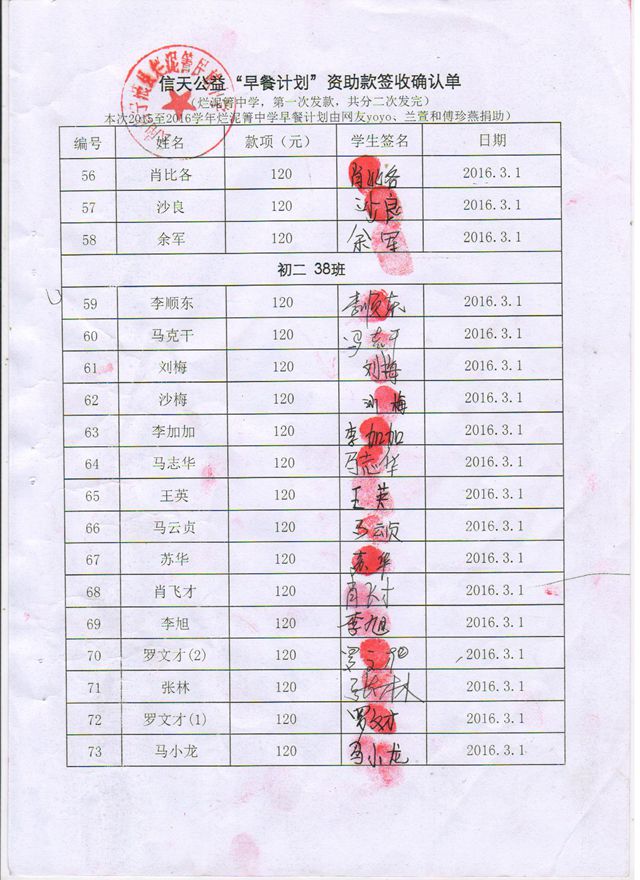 信天公益“早餐计划”资助款签收确认单
（烂泥箐中学，第一次发款，共分二次发完）
本次2015至2016学年烂泥箐中学早餐计划由网友yoyo、兰萱和傅珍燕捐助）
编号 姓名 款项（元） 学生签名 日期
56 肖比各 120 肖比各 2016.3.1
57 沙良 120 沙良 2016.3.1
58 余军 120 余军 2016.3.1
初二 38班
59 李顺东 120 李顺东 2016.3.1
60 马克干 120 马克干 2016.3.1
61 刘梅 120 刘梅 2016.3.1
62 沙梅 120 沙梅 2016.3.1
63 李加加 120 李加加 2016.3.1
64 马志华 120 马志华 2016.3.1
65 王英 120 王英 2016.3.1
66 马云贞 120 马云贞 2016.3.1
67 苏华 120 苏华 2016.3.1
68 肖飞才 120 肖飞才 2016.3.1
69 李旭 120 李旭 2016.3.1
70 罗文才(2) 120 2016.3.1
71 张林 120 张林 2016.3.1
72 罗文才(1) 120 罗文才 2016.3.1
73 马小龙 120 马小龙 2016.3.1